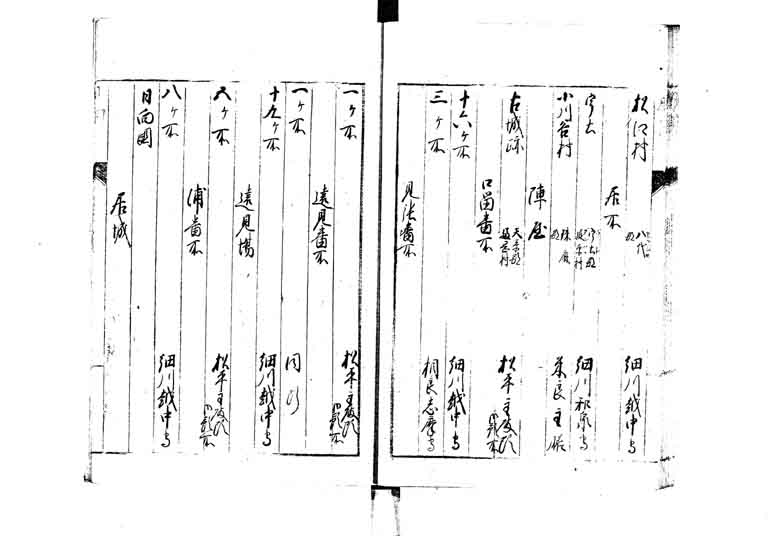 松江村 八代 細川越中守
居所
宇土 宇土郡 細川和泉守
小川谷村 米良主膳
陣屋
古城跡 天草郡 松平主殿頭 御預所
口留番所
十六ヶ所 細川越中守
三ヶ所 相良志摩守
見張番所
一ヶ所 松平主殿頭 御預所
遠見番所
一ヶ所 同断
十五ヶ所 細川越中守
遠見場
六ヶ所 松平主殿頭 御預所
浦番所
八ヶ所 細川越中守
日向国
居城